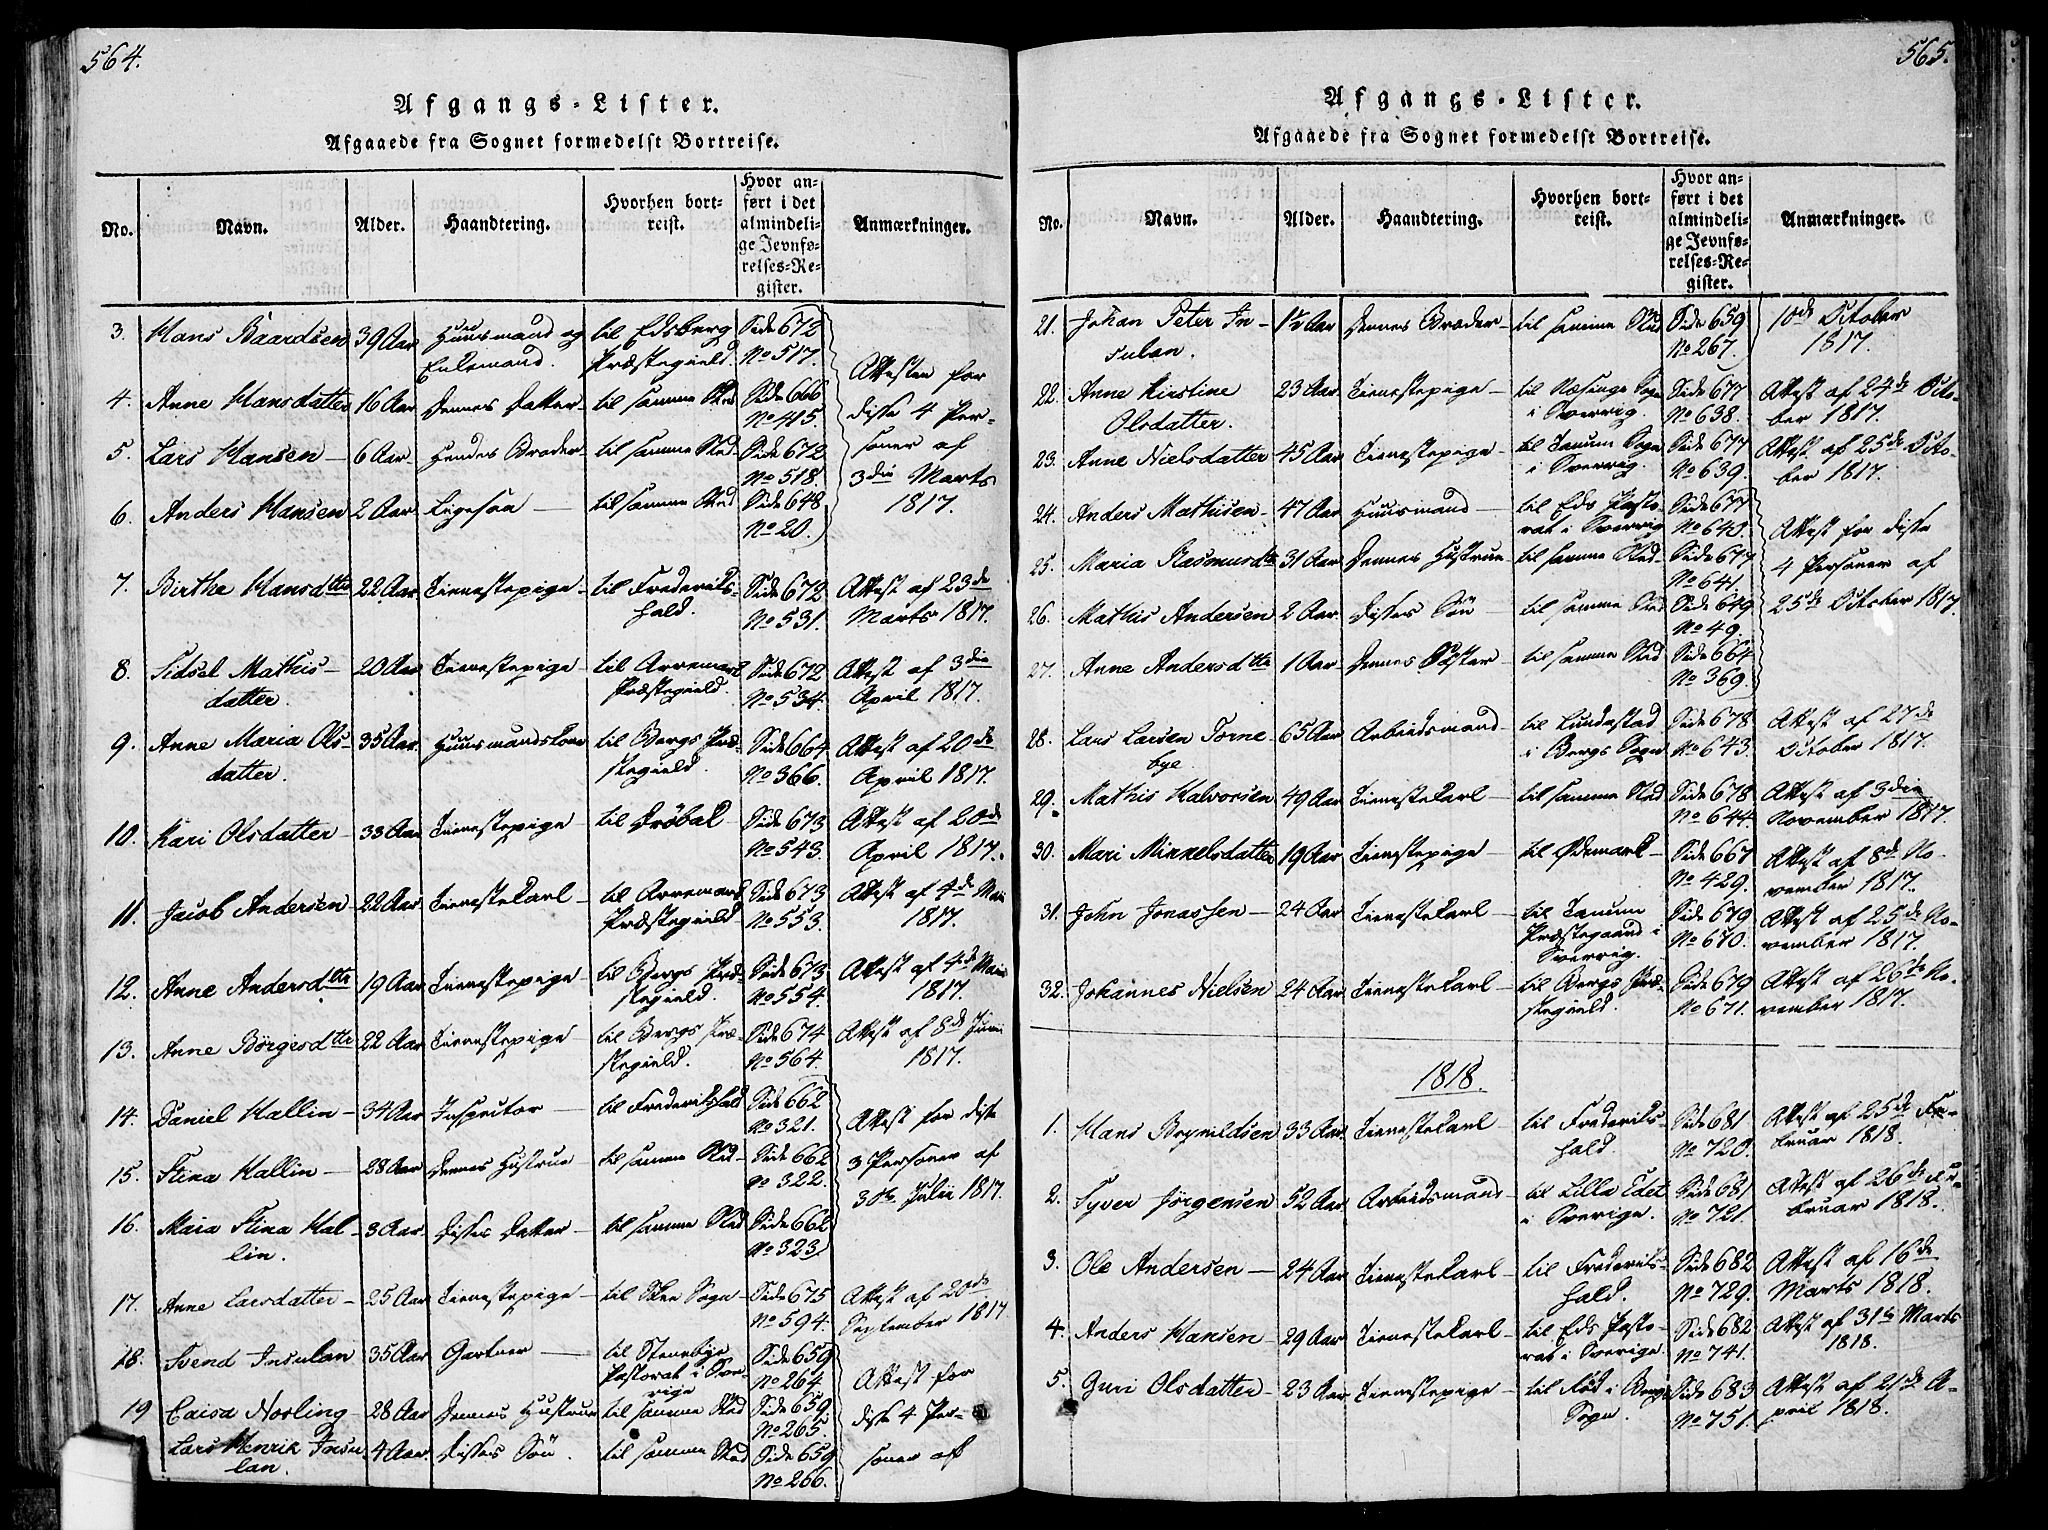 564.
Afgangs-Lister.
Afgaaede fra Sognet formedelst Bortreise.
No. Navn. Alder. Haandtering. Hvorhen bortreist. Hvor anført i det almindelige Jevnførelses-Register. Anmærkninger.
3. Hans Baardsen 39 Aar Huusmand og Enkemand. til Edsberg Præstegield. Side 672 No 517. Attesten for
4. Anne Hansdatter 16 Aar Dennes Datter til samme Sted Side 666 No 415. disse 4 Per-
5. Lars Hansen 6 Aar Hendes Broder til samme Sted Side 672 No 518. soner af
6. Anders Hansen 2 Aar Ligesaa til samme Sted Side 648 No 20. 3die Marts 1817.
7. Birthe Hansdttr 22 Aar Tienestepige til Frederiks-hald. Side 672 No 531. Attest af 23de Marts 1817.
8. Sidsel Mathis-datter. 20 Aar Tienestepige til Arremark Præstegield. Side 672 No 534. Attest af 3die April 1817.
9. Anne Maria Ols-datter. 35 Aar Huusmandskone til Bergs Præ-stegield. Side 664 No 366. Attest af 20de April 1817.
10. Kari Olsdatter 33 Aar Tienestepige til Drøbak Side 673 No 543. Attest af 20de April 1817.
11. Jacob Andersen 22 Aar Tienestekarl til Arremark Præstegield. Side 673 No 553. Attest af 4de Maii 1817.
12. Anne Andersdttr 19 Aar Tienestepige til Bergs Præ-stegield. Side 673 No 554. Attest af 4de Maii 1817.
13. Anne Børgersdttr 22 Aar Tienestepige til Bergs Præ-stegield. Side 674 No 564. Attest af 8de Junii 1817.
14. Daniel Hallin 34 Aar Inspector til Frederikshald Side 662 No 321. Attest for disse
15. Stina Hallin 28 Aar Dennes Hustrue til samme Sted Side 662 No 322. 3 Personer af
16. Maia Stina Hal-lin. 3 Aar Disses Datter til samme Sted Side 662 No 323. 30te Julii 1817.
17. Anne Larsdatter 25 Aar Tienestepige til Skee Sogn Side 675 No 594. Attest af 20de September 1817
18. Svend Insulan 35 Aar Gartner til Stenebye Pastorat i Sverrige Side 659 No 264. Attest for
19 Caisa Norling 28 Aar Dennes Hustrue til samme Sted Side 659 No 265. disse 4 Per-
Lars Henrik Insulan. 4 Aar. Disses Søn. til samme Sted Side 659 No 266. soner af
565.
Afgangs-Lister.
Afgaaede fra Sognet formedelst Bortreise.
No. Navn. Alder. Haandtering. Hvorhen bortreist. Hvor anført i det almindelige Jevnførelses-Register. Anmærkninger.
21. Johan Peter In-sulan. 1½ Aar Dennes Broder til samme Sted Side 659 No 267. 10de October 1817.
22. Anne Kirstine Olsdatter. 23 Aar Tienestepige til Næsinge Sogn i Sverrig. Side 677 No 638. Attest af 24de Octo-ber 1817.
23. Anne Nielsdatter 45 Aar Tienestepige til Tanum Sogn i Sverrig. Side 677 No 639. Attest af 25de Octo-ber 1817.
24. Anders Mathisen 47 Aar Huusmand til Eds Pasto-rat i Sverrig Side 677 No 640. Attest for disse
25. Maria Rasmusdtr 31 Aar Dennes Hustrue til samme Sted Side 677 No 641. 4 Personer af
26. Mathis Andersen 2 Aar Disses Søn til samme Sted Side 649 No 49. 25de October 1817.
27. Anne Andersdttr 1 Aar Dennes Søster til samme Sted Side 664 No 369.
28. Lars Larsen Torne-bye. 65 Aar Arbeidsmand til Lundestad i Bergs Sogn Side 678 No 643. Attest af 27de October 1817.
29. Mathis Halvorsen 49 Aar Tienestekarl til samme Sted Side 678 No 644. Attest af 3die November 1817.
30. Mari Mikkelsdatter 19 Aar Tienestepige til Ødemark Side 667 No 429. Attest af 8de No-vember 1817.
31. John Jonassen 24 Aar Tienestekarl til Tanum Præstegaard i Sverrig. Side 679 No 670. Attest af 25de No-vember 1817.
32. Johannes Nielsen 24 Aar Tienestekarl til Bergs Præ-stegield. Side 679 No 671. Attest af 26de No-vember 1817.
1818.
1. Hans Brynildsen 33 Aar Tienestekarl til Frederiks-hald. Side 681 No 720. Attest af 25de Fe-bruar 1818.
2. Syver Jørgensen 52 Aar Arbeidsmand til Lilla Edet i Sverige. Side 681 No 721. Attest af 26de Fe-bruar 1818.
3. Ole Andersen 24 Aar Tienestekarl til Frederiks-hald. Side 682 No 729. Attest af 16de Marts 1818.
4. Anders Hansen 29 Aar Tienestekarl til Eds Pasto-rat i Sverige. Side 682 No 741. Attest af 31te Marts 1818.
5. Guri Olsdatter 23 Aar Tienestepige til Rød i Bergs Sogn. Side 683 No 751. Attest af 21de A-pril 1818.